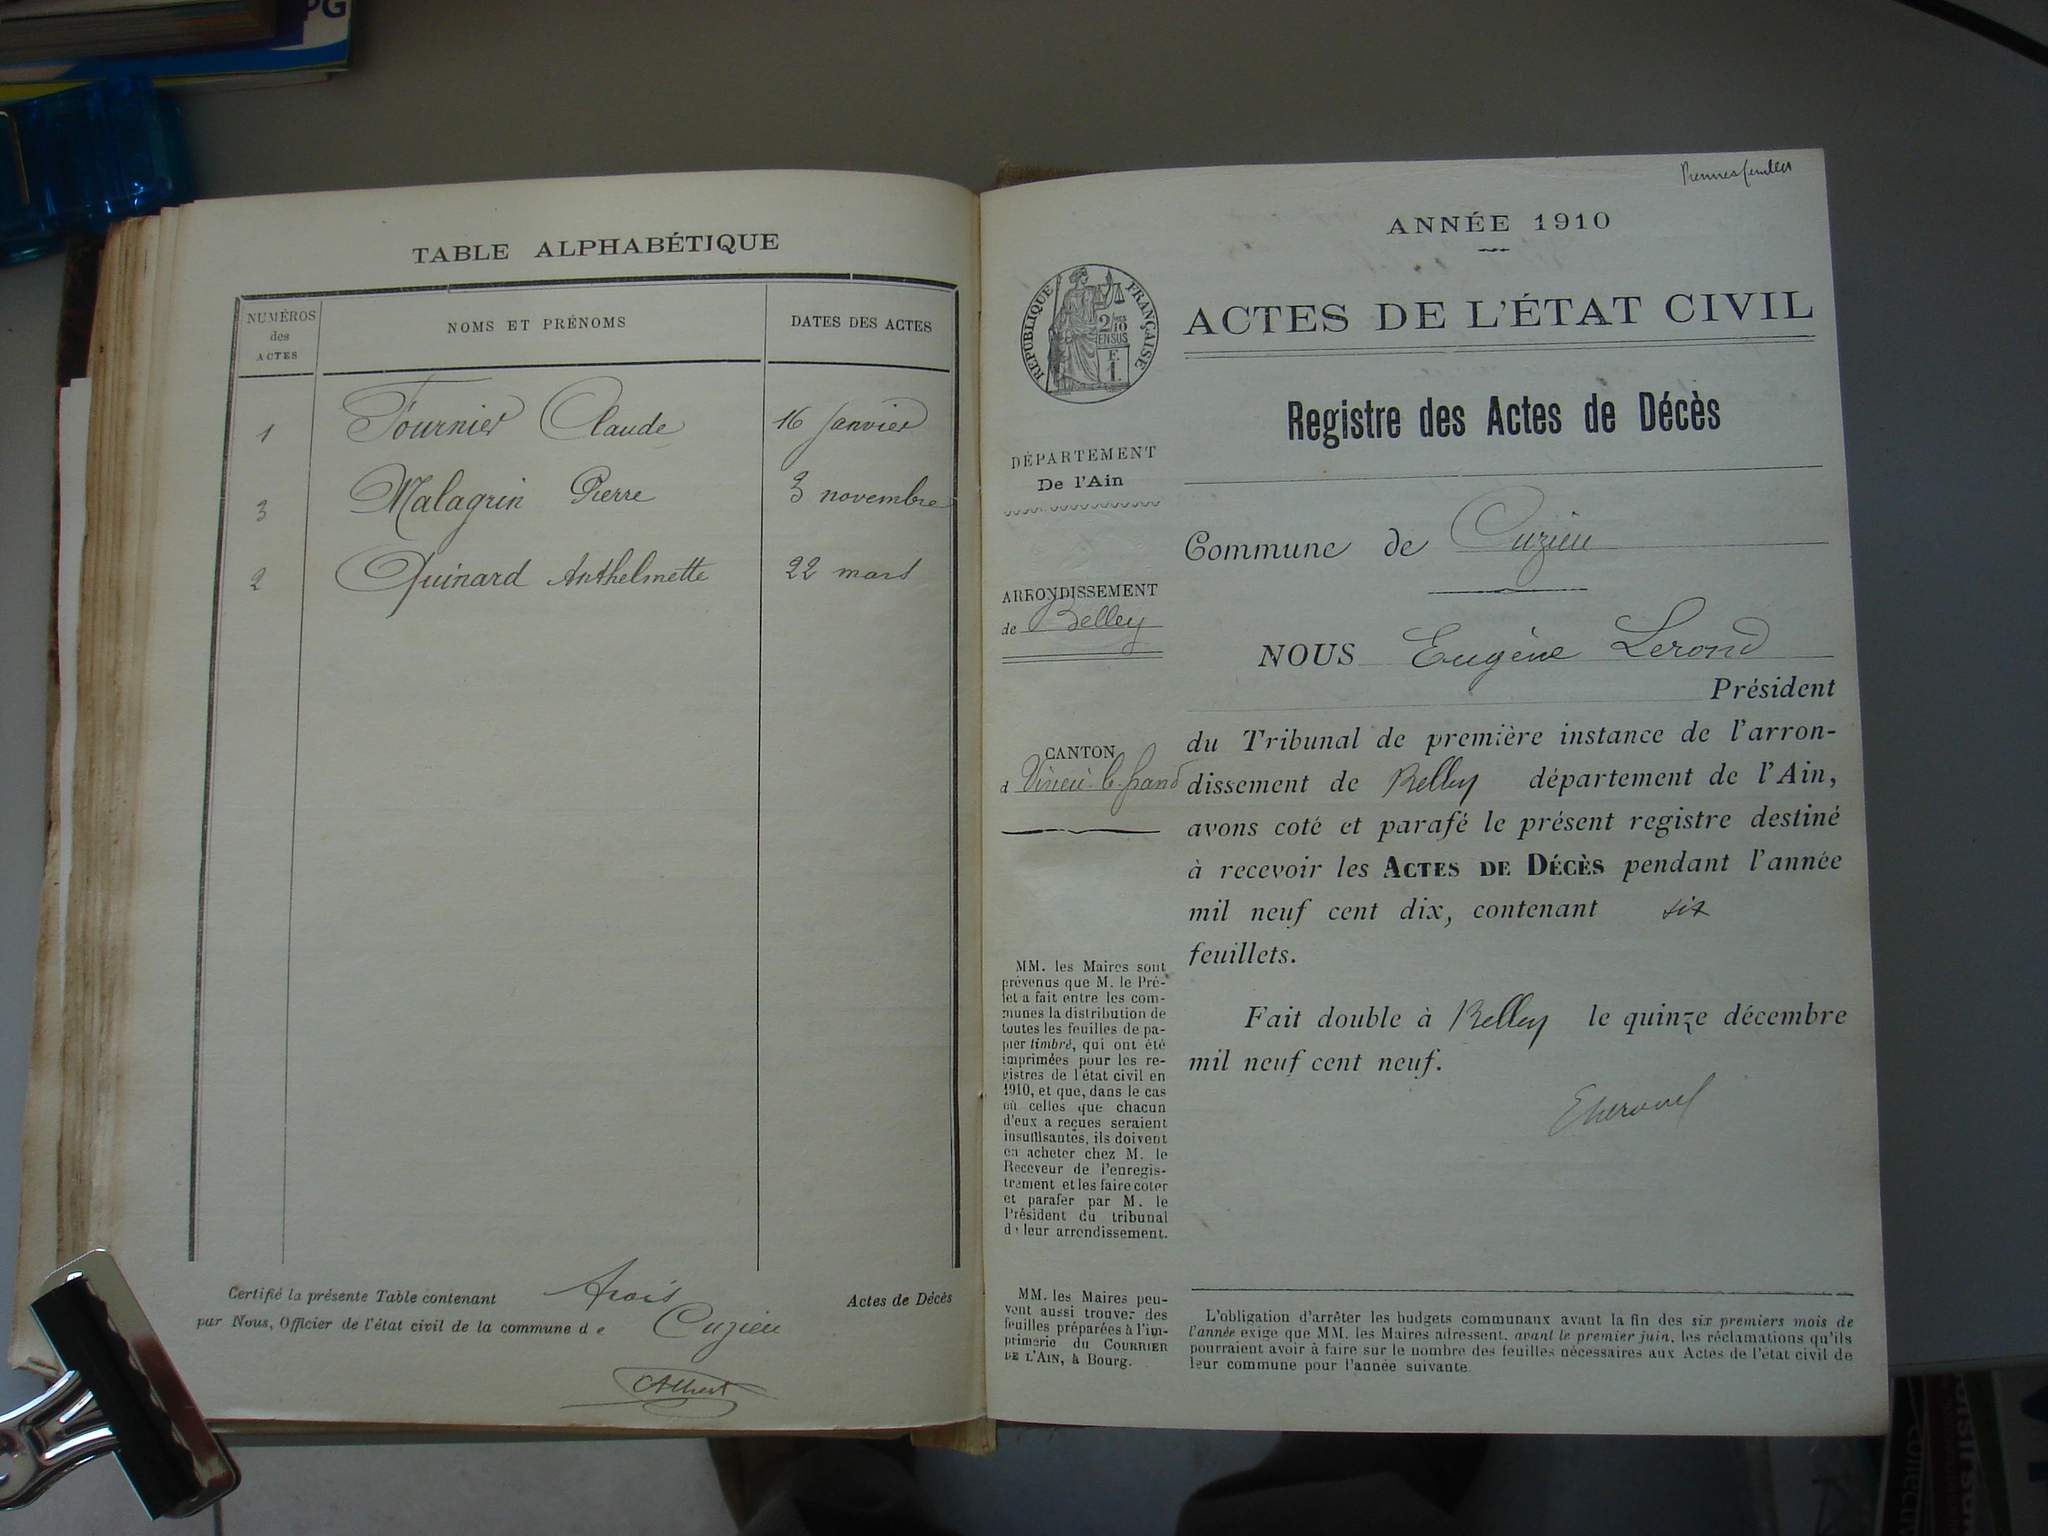 PG
TABLE ALPHABÉTIQUE
NUMÉROS des ACTES
NOMS ET PRÉNOMS
DATES DES ACTES
1 Fournier Claude 16 Janvier
3 Malagrin Pierre 3 novembre
2 Quinard Anthelmette 22 mars
Certifié la présente Table contenant trois Actes de Décès
par Nous, Officier de l'état civil de la commune de Cuzieu
Albert
Premier feuillet
ANNÉE 1910
RÉPUBLIQUE FRANÇAISE
ACTES DE L'ÉTAT CIVIL
Registre des Actes de Décès
DÉPARTEMENT
De l'Ain
Commune de Cuzieu
ARRONDISSEMENT
de Belley
NOUS Eugène Lerond
Président
du Tribunal de première instance de l'arron-
dissement de Belley département de l'Ain,
avons coté et parafé le présent registre destiné
à recevoir les ACTES DE DÉCÈS pendant l'année
mil neuf cent dix, contenant six
feuillets.
Fait double à Belley le quinze décembre
mil neuf cent neuf.
CANTON
d Virieu-le-Grand
MM. les Maires sont
prévenus que M. le Pré-
fet a fait entre les com-
munes la distribution de
toutes les feuilles de pa-
pier timbré, qui ont été
imprimées pour les re-
gistres de l'état civil en
1910, et que, dans le cas
où celles que chacun
d'eux a reçues seraient
insuffisantes, ils doivent
en acheter chez M. le
Receveur de l'enregis-
trement et les faire coter
et parafer par M. le
Président du tribunal
de leur arrondissement.
MM. les Maires peu-
vent aussi trouver des
feuilles préparées à l'im-
primerie du COURRIER
DE L'AIN, à Bourg.
L'obligation d'arrêter les budgets communaux avant la fin des six premiers mois de
l'année exige que MM. les Maires adressent, avant le premier juin, les réclamations qu'ils
pourraient avoir à faire sur le nombre des feuilles nécessaires aux Actes de l'état civil de
leur commune pour l'année suivante.